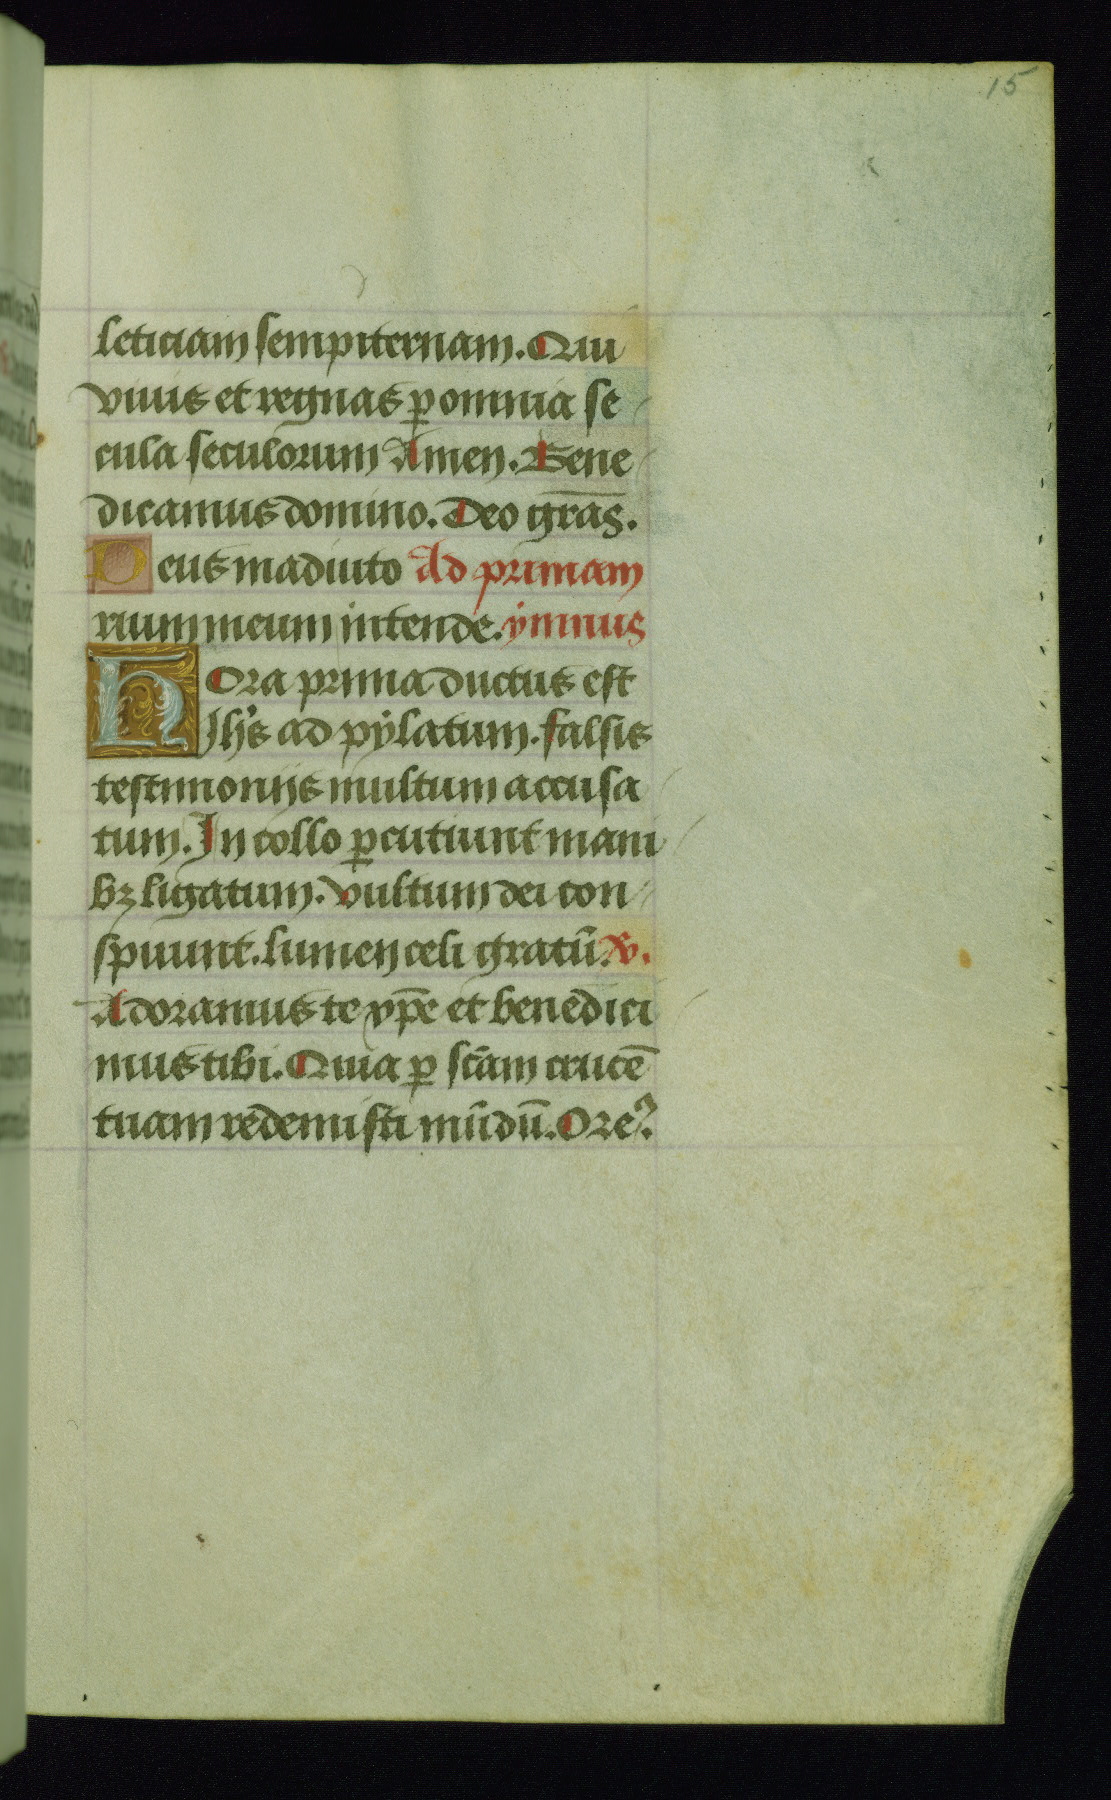 15
leticiam sempiternam. Qui
viuis et regnas ꝑ omnia se
cula seculorum Amen. Bene
dicamus domino. Deo gr̄as.
Deus in adiuto Ad primam
rium meum intende. ymnus
Hora prima ductus est
Jhs̄ ad pylatum. falsis
testimoniis multum accusa
tum. In collo ꝑcutiunt mani
bꝫ ligatum. vultum dei con
spuunt. lumen celi gratū. v.
Adoramus te xp̄e et benedici
mus tibi. Quia ꝑ sc̄am crucē
tuam redemisti mūdū. Ore